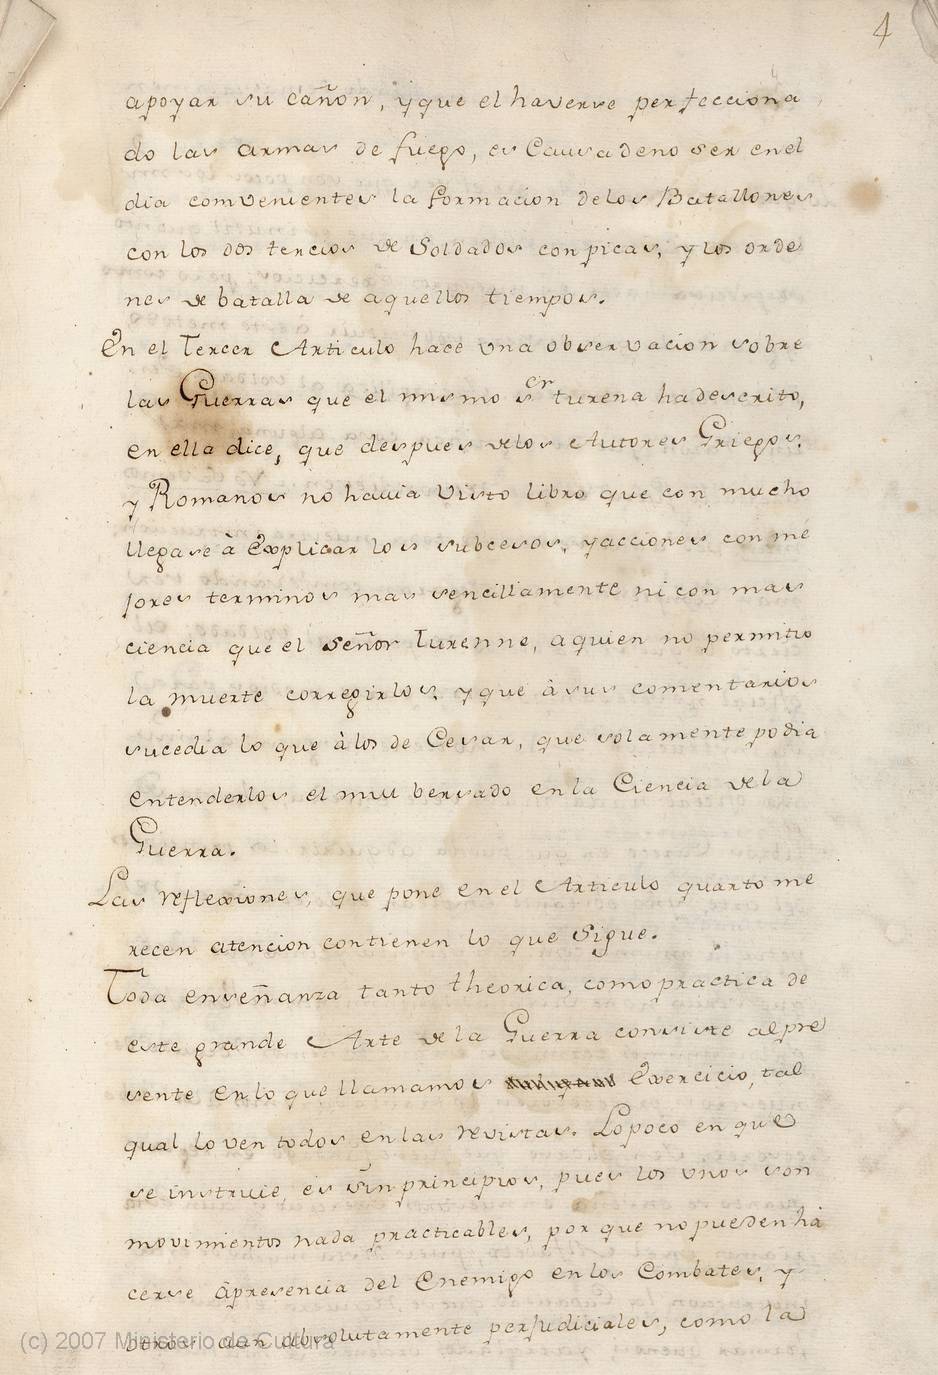 4
apoyar su cañon, y que el haverse perfecciona
do las armas de fuego, es Causa deno ser en el
dia convenientes la formacion delos Batallones
con los dos tercios de Soldados con picas, y los orde
nes de batalla de aquellos tiempos.
En el Tercer Articulo hace una observacion sobre
las Guerras que el mismo s.er turena ha descrito,
en ella dice, que despues delos Autores Griegos,
y Romanos no havia visto libro que con mucho
llegase à Explicar los subcesos, y acciones con me
jores terminos mas sencillamente ni con mas
ciencia que el señor Turenne, a quien no permitio
la muerte corregirlos, y que à sus comentarios
sucedia lo que à los de Cesar, que solamente podia
entenderlos el mui bersado en la Ciencia dela
Guerra.
Las reflexiones, que pone en el Articulo quarto me
recen atencion contienen lo que Sigue.
Toda enseñanza tanto theorica, como practica de
este grande Arte dela Guerra consiste al pre
sente en lo que llamamos Exercicio, tal
qual lo ven todos en las revistas. Lo poco en que
se instruie, es sin principios, pues los unos son
movimientos nada practicables, por que no pueden ha
cerse à presencia del Enemigo en los Combates, y
otros dan absolutamente perjudiciales, como la
(c) 2007 Ministerio de Cultura